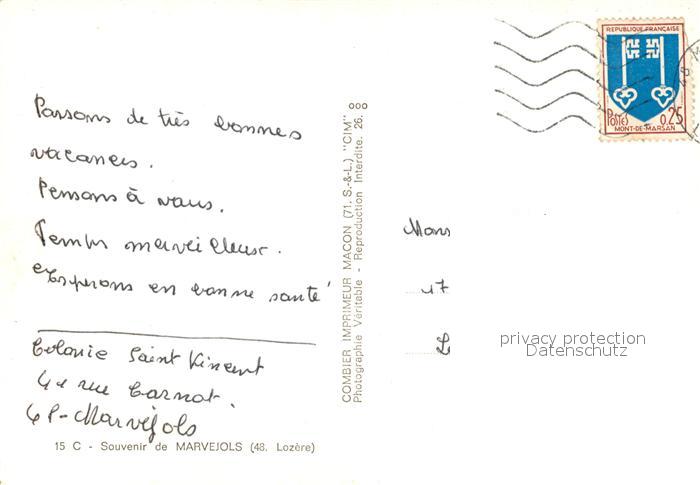 Passons de très bonnes
vacances.
Pensons à vous.
Temps merveilleux.
Espérons en bonne santé
Colonie Saint Vincent
rue Carnot.
48-Marvejols
15 C - Souvenir de MARVEJOLS (48. Lozère)
COMBIER IMPRIMEUR MACON (71. S.-&-L.) "CIM"
Photographie Véritable - Reproduction Interdite. 26.
REPUBLIQUE FRANÇAISE
Postes 0.25
MONT-DE-MARSAN
Mons
17
L
privacy protection
Datenschutz